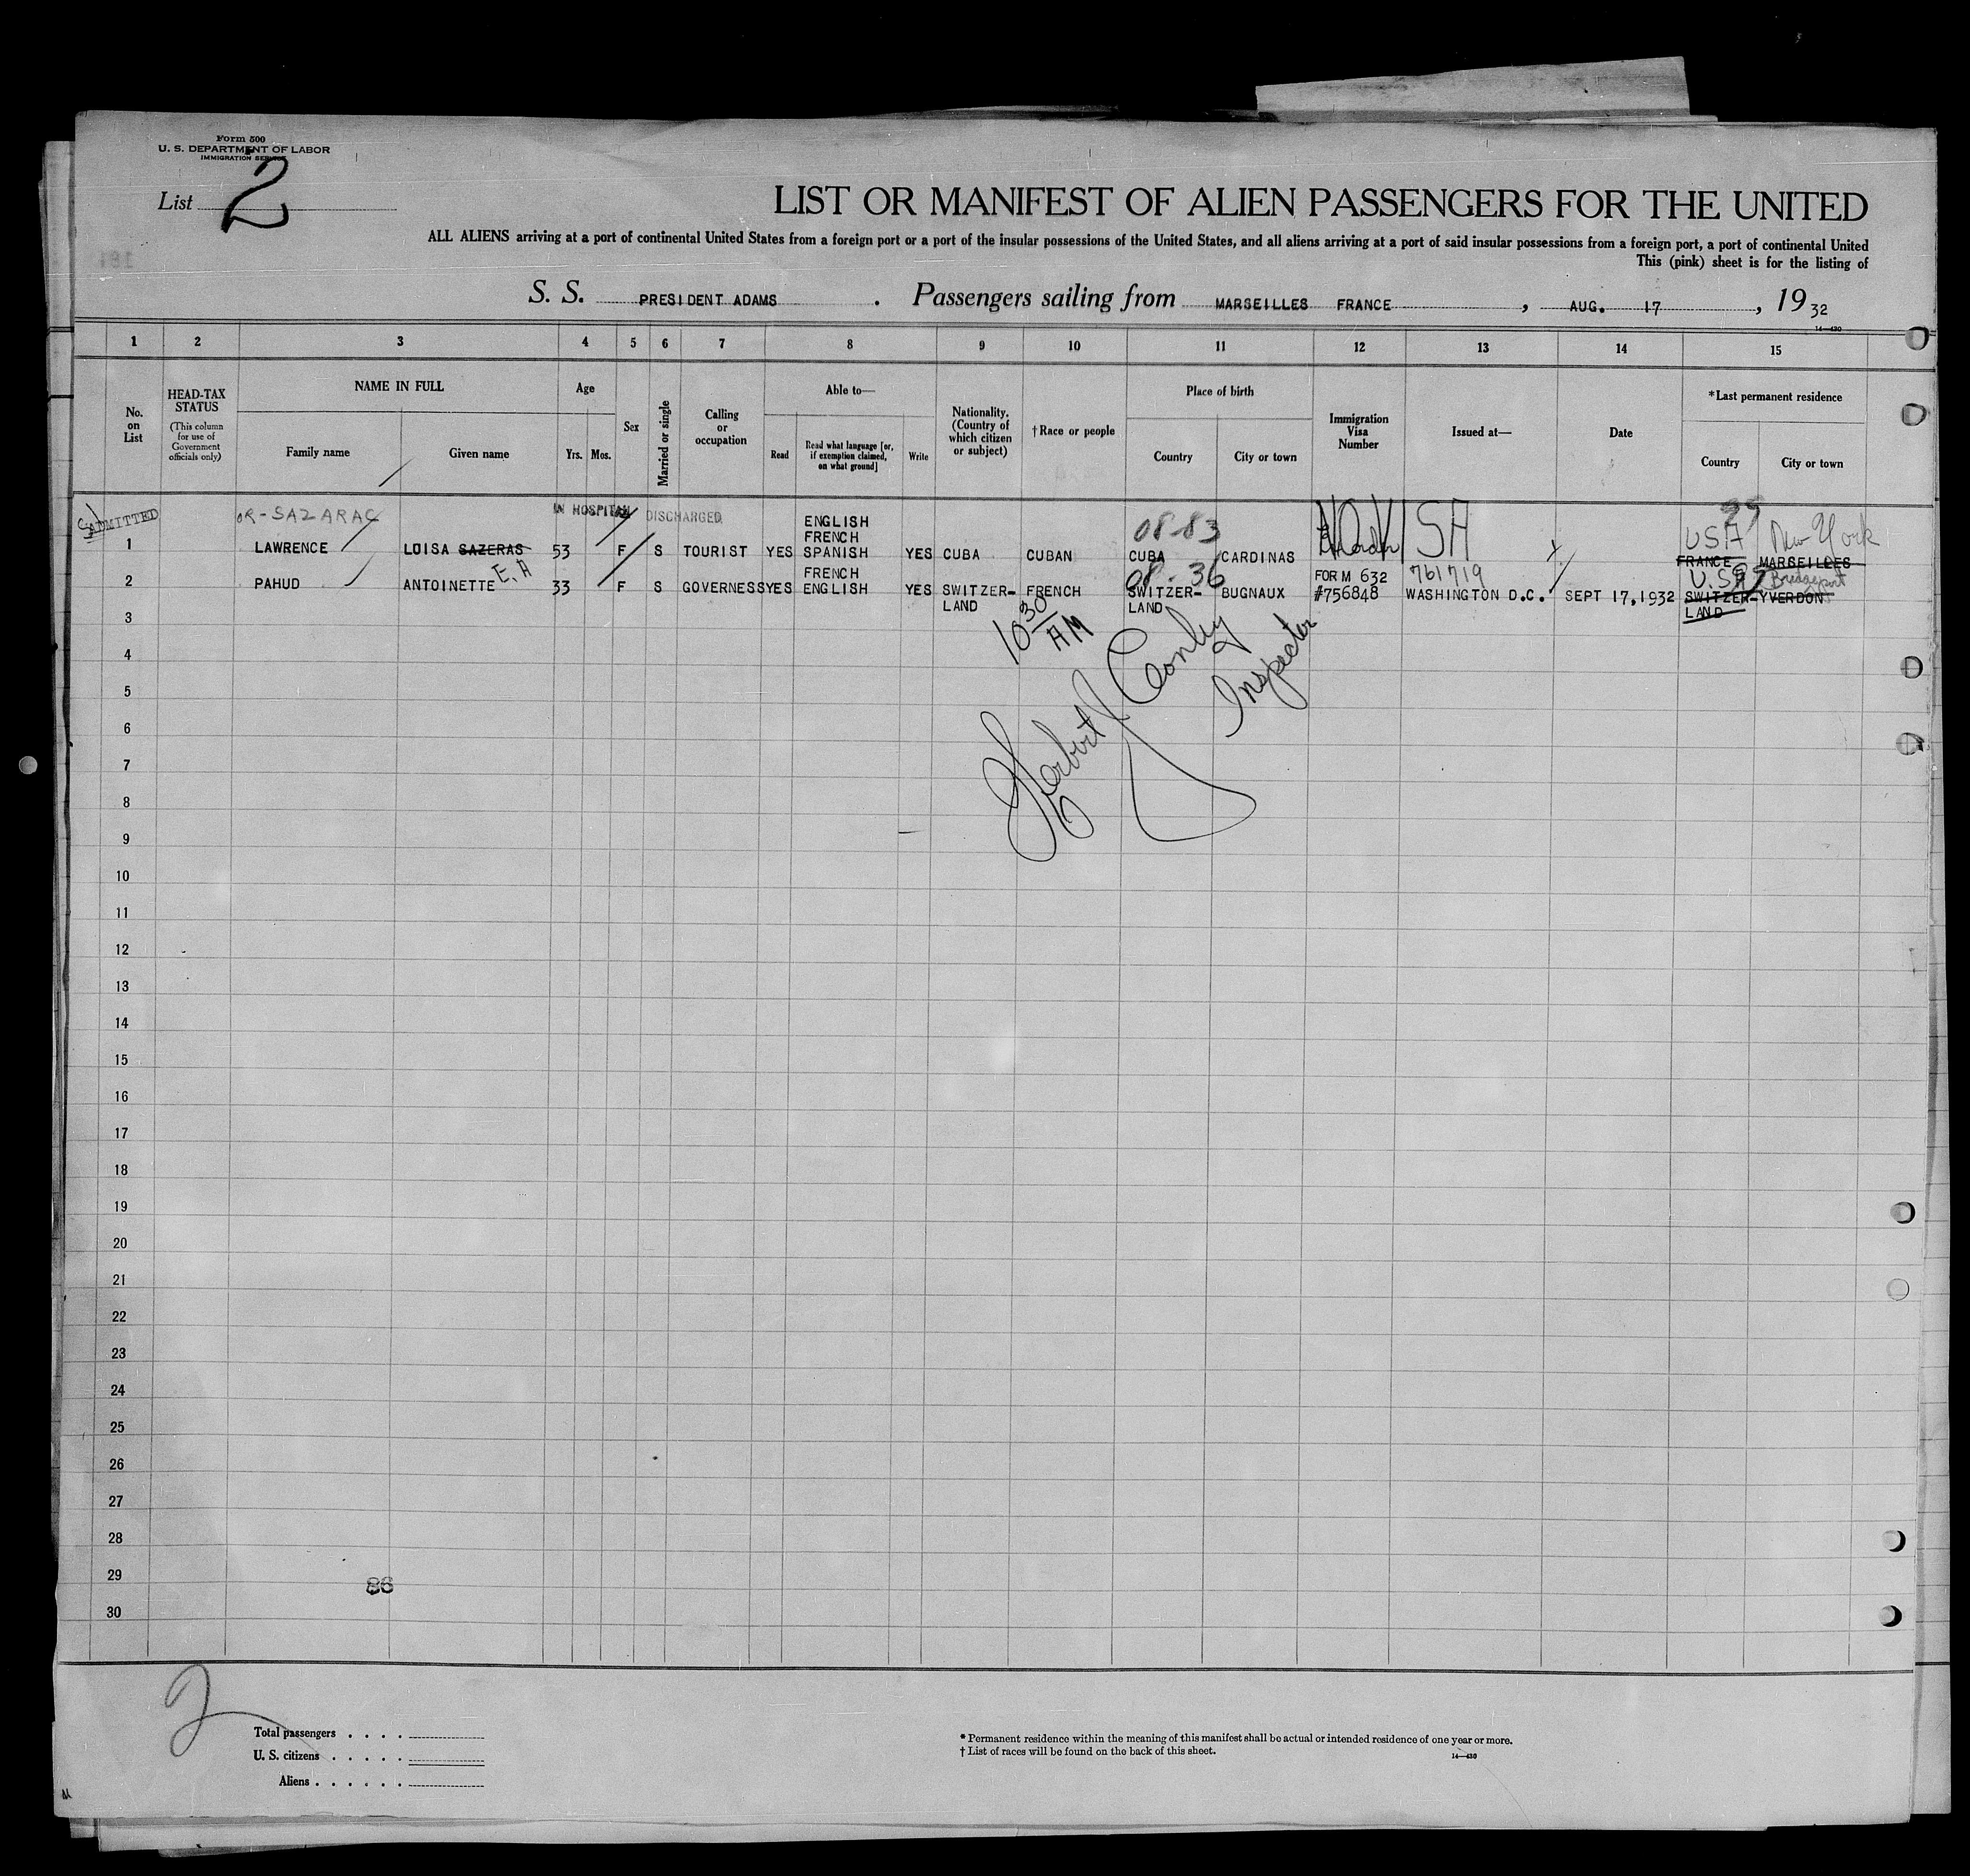 Form 500
U. S. DEPARTMENT OF LABOR
IMMIGRATION SERVICE
List 2
LIST OR MANIFEST OF ALIEN PASSENGERS FOR THE UNITED
ALL ALIENS arriving at a port of continental United States from a foreign port or a port of the insular possessions of the United States, and all aliens arriving at a port of said insular possessions from a foreign port, a port of continental United
This (pink) sheet is for the listing of
S. S. PRESIDENT ADAMS . Passengers sailing from MARSEILLES FRANCE , AUG. 17 , 19 32
14—430
1 2 3 4 5 6 7 8 9 10 11 12 13 14 15
No. on List
HEAD-TAX STATUS (This column for use of Government officials only)
NAME IN FULL
Family name Given name
Age
Yrs. Mos.
Sex
Married or single
Calling or occupation
Able to—
Read Read what language [or, if exemption claimed, on what ground] Write
Nationality. (Country of which citizen or subject)
†Race or people
Place of birth
Country City or town
Immigration Visa Number
Issued at—
Date
*Last permanent residence
Country City or town
ADMITTED OR-SAZARAC IN HOSPITAL DISCHARGED ENGLISH 08-83 NO VISA USA New York
FRENCH
1 LAWRENCE LUISA SAZERAS 53 F S TOURIST YES SPANISH YES CUBA CUBAN CUBA CARDINAS FRANCE MARSEILLES
FRENCH 08-36 FORM 632 761719 U.S.A Bridgeport
2 PAHUD ANTOINETTE E.A 33 F S GOVERNESS YES ENGLISH YES SWITZER- FRENCH SWITZER- BUGNAUX #756848 WASHINGTON D.C. SEPT 17, 1932 SWITZER- YVERDON
LAND LAND LAND
3
10 30 AM
4
5
Herbert J Conby Inspector
6
7
8
9
10
11
12
13
14
15
16
17
18
19
20
21
22
23
24
25
26
27
28
29
86
30
2
Total passengers . . . .
U. S. citizens . . . . .
Aliens . . . . . .
* Permanent residence within the meaning of this manifest shall be actual or intended residence of one year or more.
† List of races will be found on the back of this sheet.
14—430